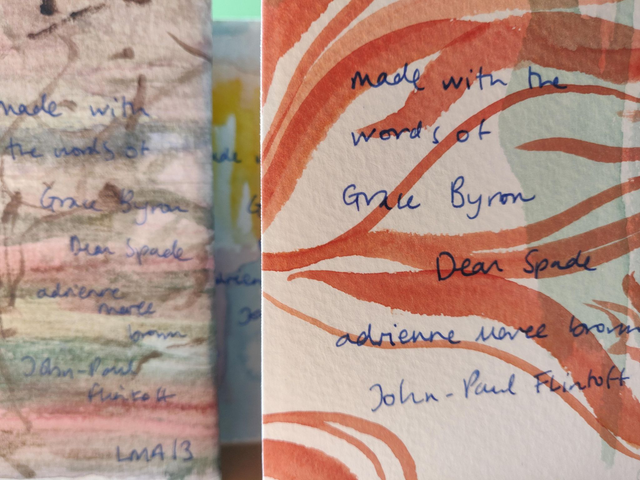 made with
the words of
Grace Byron
Dean Spade
adrienne
maree
brown
John-Paul
Flintoff
LMA 13
made with the
words of
Grace Byron
Dean Spade
adrienne maree brown
John-Paul Flintoff